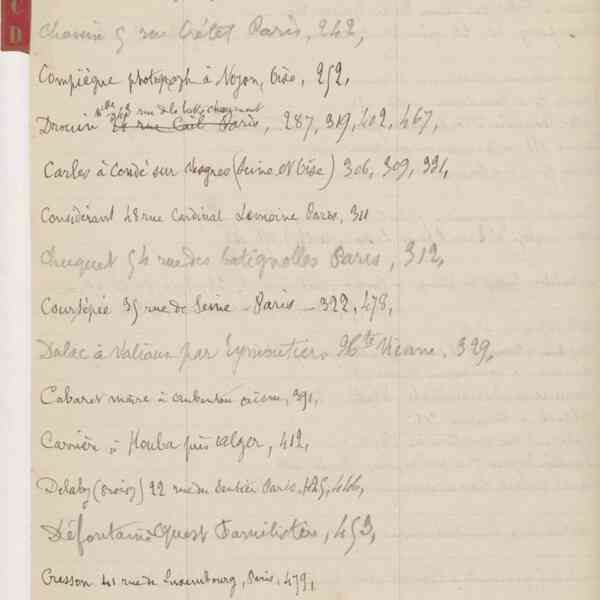 C
D
Chassin 5 rue Crétet Paris, 242,
Compiègne photograph à Noyon, Oise, 252,
243 rue de la
Drouin rue Cail Paris, 287, 319, 402, 467,
Carles à Condé sur Vesgres (Seine et Oise) 306, 309, 331,
Considérant 48 rue Cardinal Lemoine Paris, 311
Chuquet 54 rue des Batignolles Paris, 312,
Courtépée 35 rue de Seine - Paris - 322, 478,
Dalac à par Eymoutiers Hte Vienne, 329,
Cabaret maire à aubenton aisne, 391,
Carrière à Kouba près alger, 412,
Delaby 22 rue du Sentier Paris, 425, 446,
Défontaine Ouest Familistère, 453,
Cresson 41 rue de Luxembourg, Paris, 479,